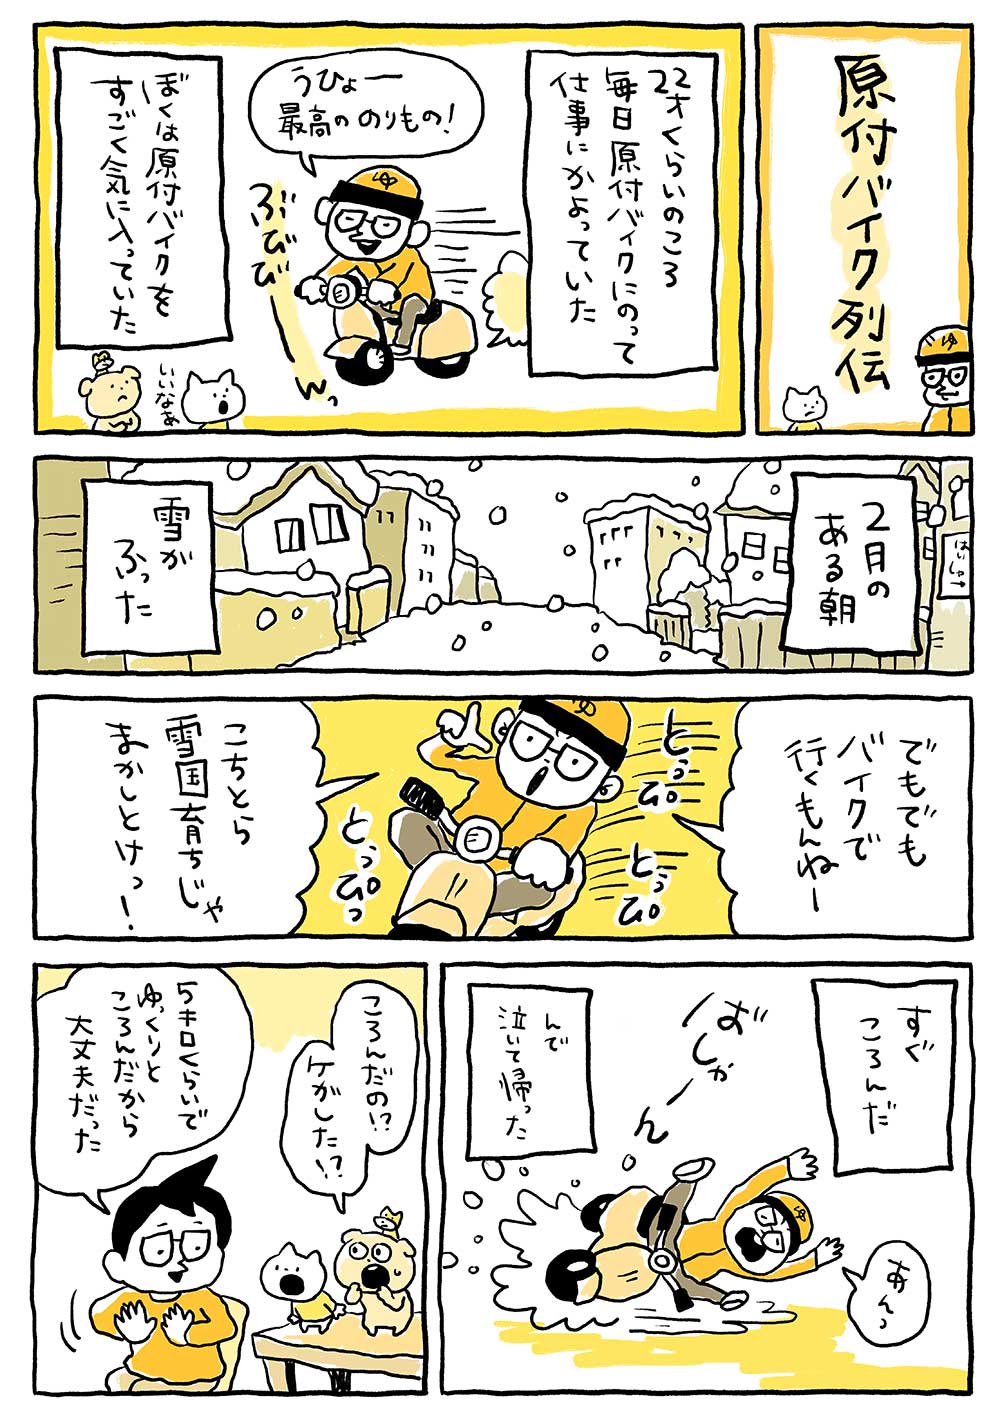 原付バイク列伝
22才くらいのころ
毎日原付バイクにのって
仕事にかよっていた
うひょー
最高ののりもの!
ゆ
ぶびびーーんっ
ぼくは原付バイクを
すごく気に入っていた
いいなあ
2月の
ある朝
はいしゃ→
雪が
ふった
でもでも
バイクで
行くもんねー
とっぴっ
とっぴ
とっぴっ
ゆ
こちとら
雪国育ちじゃ
まかしとけっ!
すぐ
ころんだ
ばしゃーん
あんっ
ゆ
んで
泣いて帰った
ころんだの!?
ケがした!?
5キロくらいで
ゆっくりと
ころんだから
大丈夫だった